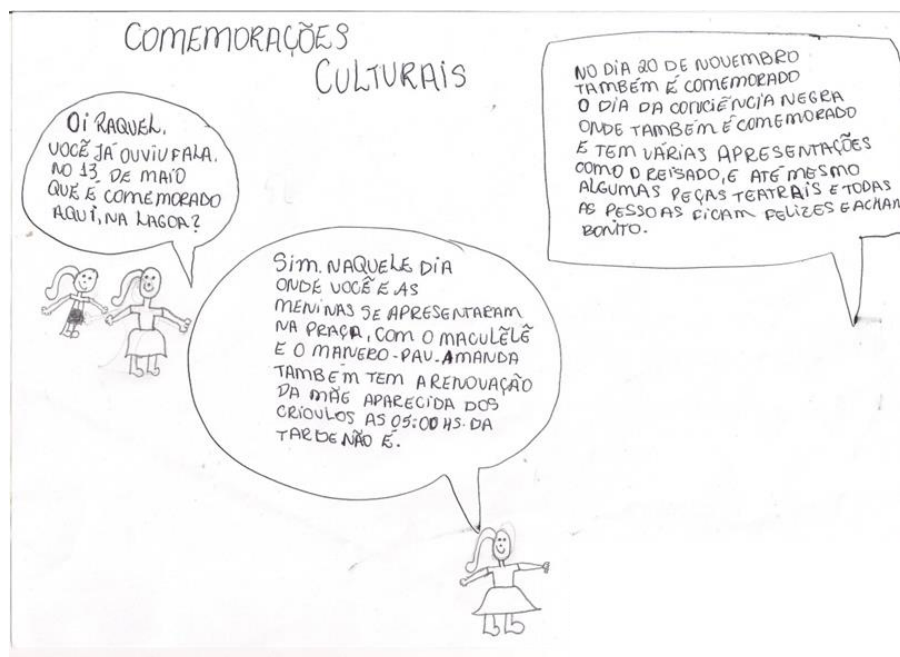 COMEMORAÇÕES
CULTURAIS
Oi RAQUEL,
VOCÊ JÁ OUVIU FALA.
NO 13 DE MAIO
QUE É COMEMORADO
AQUI, NA LAGOA?
Sim. NAQUELE DIA
ONDE VOCÊ E AS
MENINAS SE APRESENTARAM
NA PRAÇA, COM O MACULÊLÊ
E O MANERO-PAU. AMANDA
TAMBÉM TEM A RENOVAÇÃO
DA MÃE APARECIDA DOS
CRIOULOS AS 05:00 HS. DA
TARDE NÃO É.
NO DIA 20 DE NOVEMBRO
TAMBÉM É COMEMORADO
O DIA DA CONCIÊNCIA NEGRA
ONDE TAMBÉM É COMEMORADO
E TEM VÁRIAS APRESENTAÇÕES
COMO O REISADO, E ATÉ MESMO
ALGUMAS PEÇAS TEATRAIS E TODAS
AS PESSOAS FICAM FELIZES E ACHAM
BONITO.